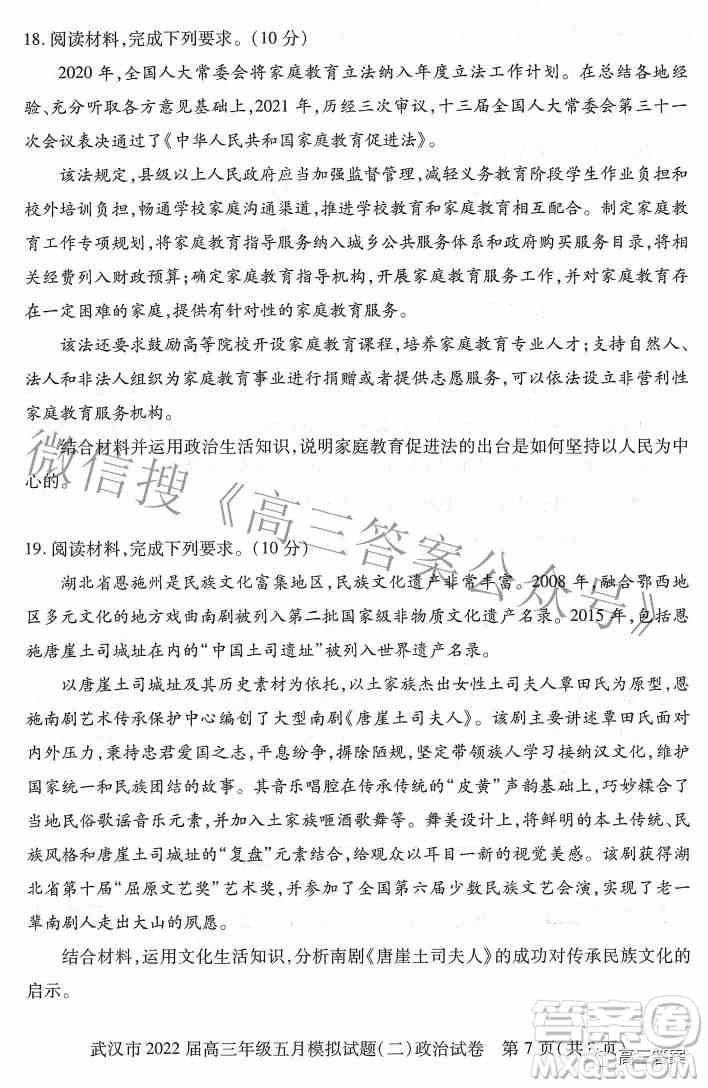 18. 阅读材料,完成下列要求。(10 分)
2020 年,全国人大常委会将家庭教育立法纳入年度立法工作计划。在总结各地经
验、充分听取各方意见基础上,2021 年,历经三次审议,十三届全国人大常委会第三十一
次会议表决通过了《中华人民共和国家庭教育促进法》。
该法规定,县级以上人民政府应当加强监督管理,减轻义务教育阶段学生作业负担和
校外培训负担,畅通学校家庭沟通渠道,推进学校教育和家庭教育相互配合。制定家庭教
育工作专项规划,将家庭教育指导服务纳入城乡公共服务体系和政府购买服务目录,将相
关经费列入财政预算;确定家庭教育指导机构,开展家庭教育服务工作,并对家庭教育存
在一定困难的家庭,提供有针对性的家庭教育服务。
该法还要求鼓励高等院校开设家庭教育课程,培养家庭教育专业人才;支持自然人、
法人和非法人组织为家庭教育事业进行捐赠或提供志愿服务,可以依法设立非营利性
家庭教育服务机构。
结合材料并运用政治生活知识,说明家庭教育促进法的出台是如何坚持以人民为中
心的。
微信搜《高三答案公众号》
19. 阅读材料,完成下列要求。(10 分)
湖北省恩施州是民族文化富集地区,民族文化遗产非常丰富。2008 年,融合鄂西地
区多元文化的地方戏曲南剧被列入第二批国家级非物质文化遗产名录。2015 年,包括恩
施唐崖土司城址在内的“中国土司遗址”被列入世界遗产名录。
以唐崖土司城址及其历史素材为依托,以土家族杰出女性土司夫人覃田氏为原型,恩
施南剧艺术传承保护中心编创了大型南剧《唐崖土司夫人》。该剧主要讲述覃田氏面对
内外压力,秉持忠君爱国之志,平息纷争,摒除陋规,坚定带领土家族人接纳汉文化,维护
国家和民族团结的故事。其音乐唱腔在传统的“皮黄”声韵基础上,巧妙糅合了
当地民俗歌谣音乐元素,并加入土家族咂酒歌舞等。舞美设计上,将鲜明的本土传统、民
族风格和唐崖土司城址的“复盘”众多情景结合,给观众耳目一新的视觉美感。该剧获得湖
北省第十届“屈原文艺奖”艺术奖,并参加了全国第六届少数民族文艺会演,实现了老一
辈南剧人走出大山的夙愿。
结合材料,运用文化生活知识,分析南剧《唐崖土司夫人》的成功对传承民族文化的
启示。
武汉市 2022 届高三年级五月模拟试题(二)政治试卷 第 7 页(共 8 页)
答案圈
高三答案